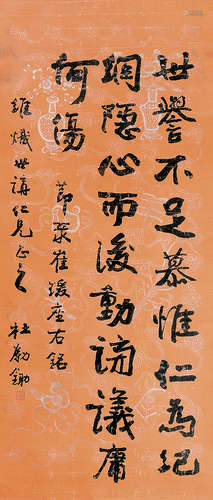 世譽不足慕惟仁為紀
綱隱心而後動謗議庸
何傷
節录崔瑗座右銘
維熾世講仁兄正之
杜勒鋤